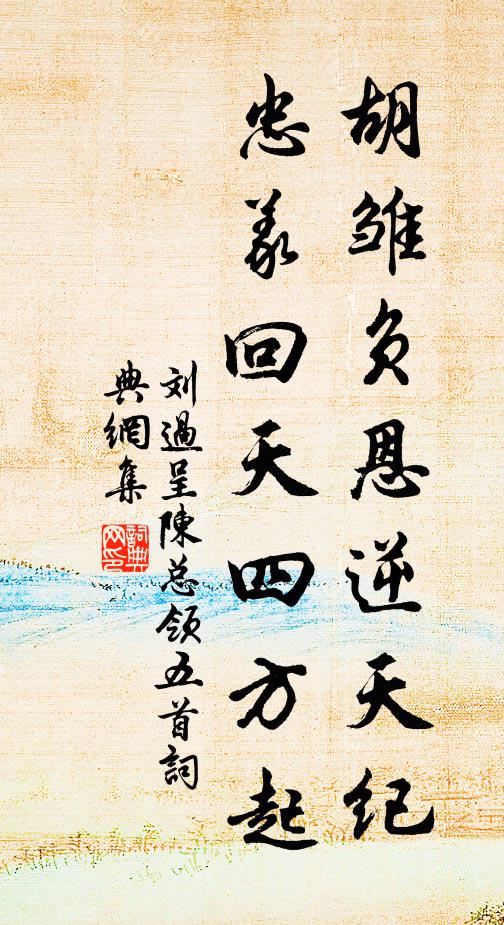 胡雏负恩逆天纪
忠义回天四方起
刘過呈陳总领五首詞
典網集
詞典
网印